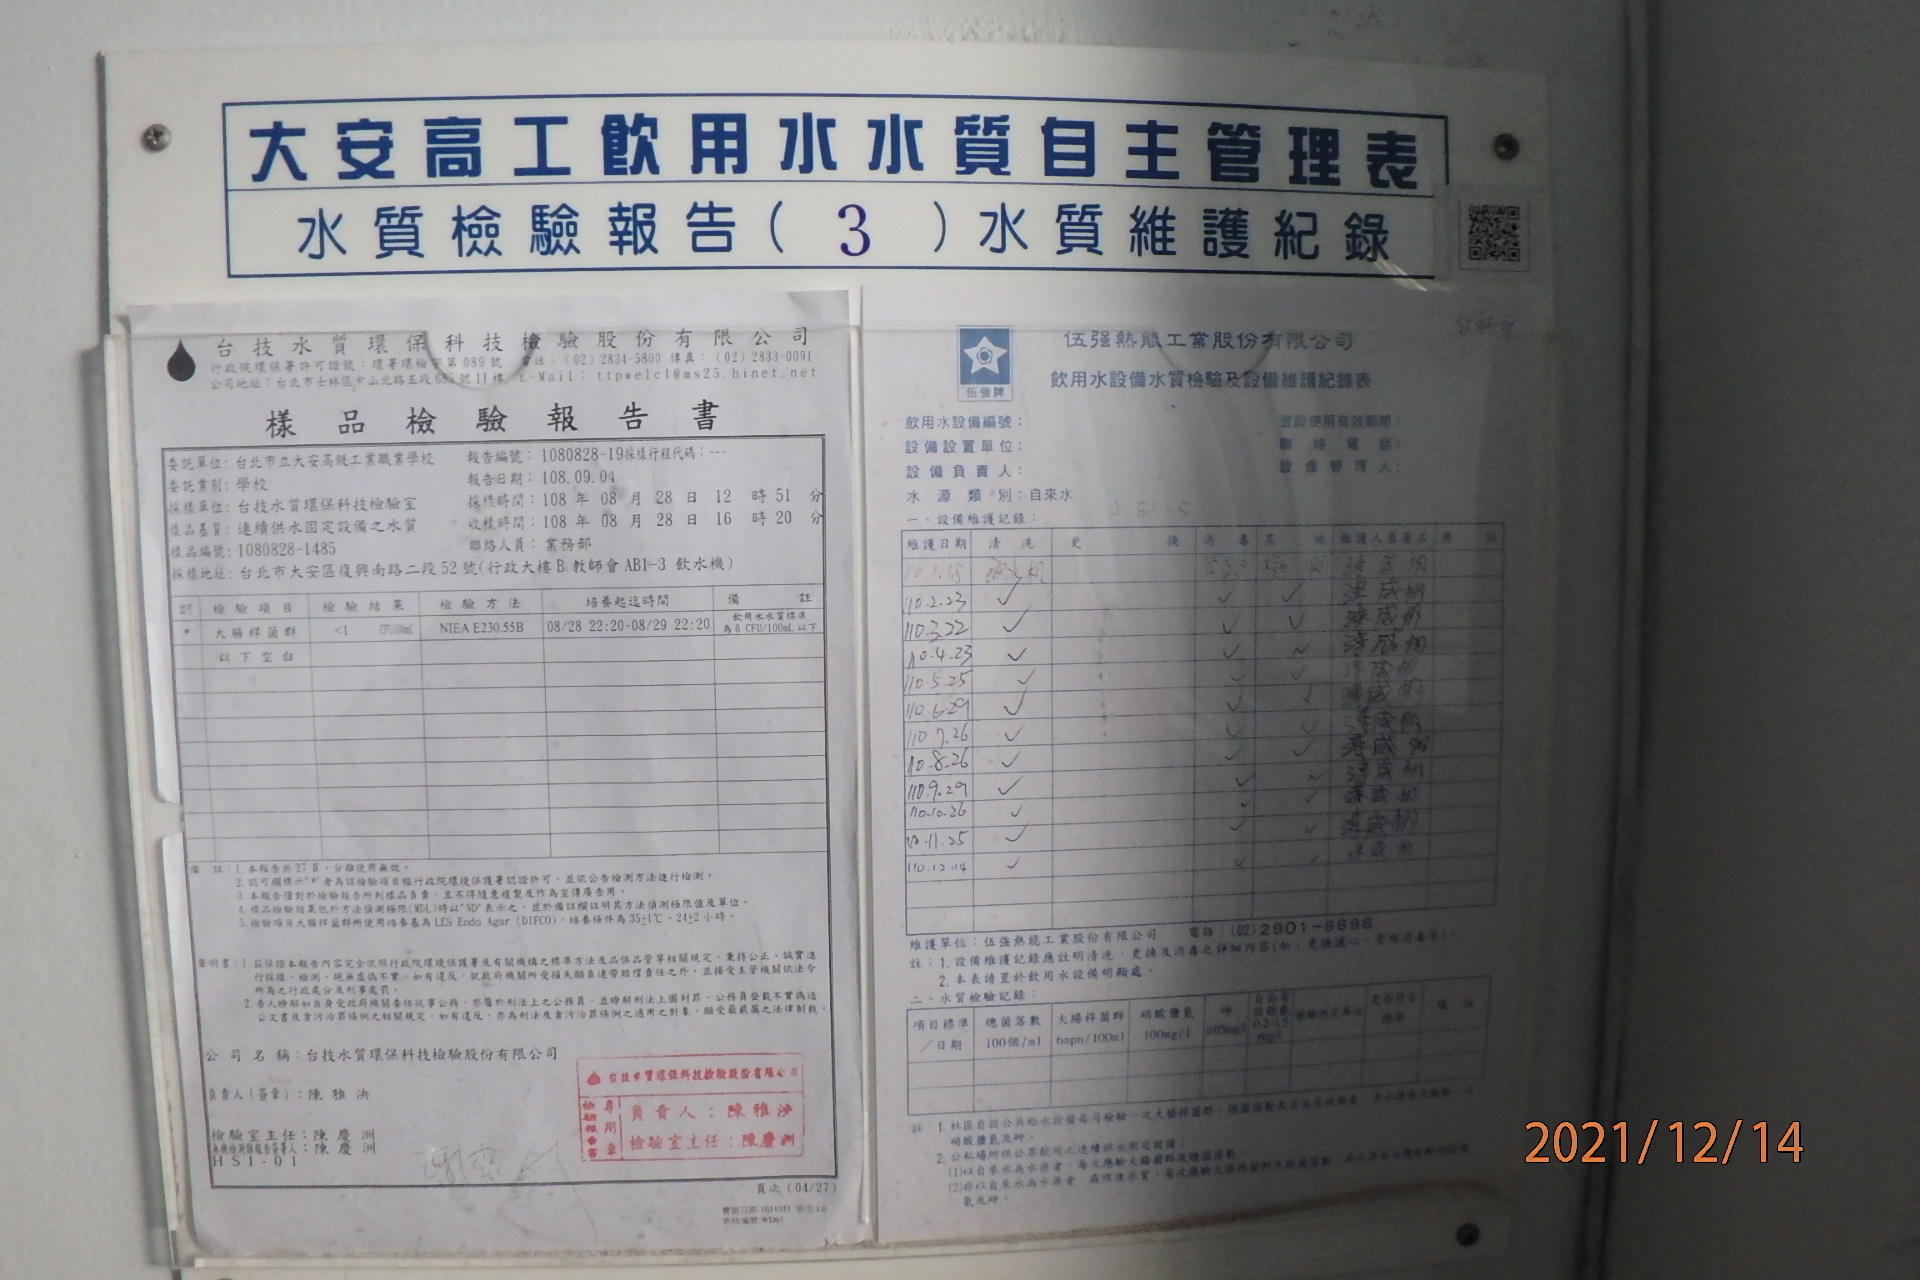 大安高工飲用水水質自主管理表
水質檢驗報告( 3 )水質維護紀錄
台技水質環保科技檢驗股份有限公司
行政院環保署許可證號：環署環檢字第089號 電話：(02) 2834-5800 傳真：(02) 2833-0091
公司地址：台北市士林區中山北路五段685號11樓 E-Mail： ttpwelcl@ms25.hinet.net
樣品檢驗報告書
委託單位：台北市立大安高級工業職業學校 報告編號：1080828-19採樣行程代碼：---
委託業別：學校 報告日期：108.09.04
採樣單位：台技水質環保科技檢驗室 採樣時間：108 年 08 月 28 日 12 時 51 分
樣品基質：連續供水固定設備之水質 收樣時間：108 年 08 月 28 日 16 時 20 分
樣品編號：1080828-1485 聯絡人員：業務部
採樣地址：台北市大安區復興南路二段52號(行政大樓B1教師會 AB1-3 飲水機)
檢驗項目 檢驗結果 檢驗方法 培養起迄時間 備 註
* 大腸桿菌群 <1 CFU/100mL NIEA E230.55B 08/28 22:20~08/29 22:20 飲用水水質標準
為 6 CFU/100mL 以下
以下空白
備 註：1.本報告共27頁，分離使用無效。
2.認可欄標示"*"者為該檢驗項目經行政院環境保護署認證許可，並依公告檢測方法進行檢測。
3.本報告僅對於檢驗報告所列樣品負責，且不得隨意複製及作為宣傳廣告用。
4.樣品檢驗結果低於方法偵測極限(MDL)時以"ND"表示之，並於備註欄註明其方法偵測極限值及單位。
5.檢驗項目大腸桿菌群所使用培養基為 LES Endo Agar (DIFCO)，培養條件為 35±1℃、24±2 小時。
聲明書：1.茲保證本報告內容完全依照行政院環境保護署及有關機構之標準方法及品保品管等相關規定，秉持公正、誠實進
行採樣、檢測。絕無虛偽不實，如有違反，就政府機關所受損失願負連帶賠償責任之外，並接受主管機關依法令
所為之行政處分及刑事處罰。
2.吾人瞭解如自身受政府機關委任從事公務，亦屬於刑法上之公務員，並瞭解刑法上圖利罪、公務員登載不實偽造
公文書及貪污治罪條例之相關規定，如有違反，亦為刑法及貪污治罪條例之適用之對象，願受最嚴厲之法律制裁。
公司名稱：台技水質環保科技檢驗股份有限公司
負責人(簽章)：陳雅泱
檢驗室主任：陳慶洲
無機檢測類報告簽署人：陳慶洲
HSI-01
台技水質環保科技檢驗股份有限公司
檢驗報告書專用章
負責人：陳雅泱
檢驗室主任：陳慶洲
頁次 (04/27)
伍強牌
伍强熱能工業股份有限公司
飲用水設備水質檢驗及設備維護紀錄表
飲用水設備編號： 登設使用有效期間：
設備設置單位： 聯絡電話：
設備負責人： 設備管理人：
水源類別：自來水
一、設備維護記錄：
維護日期 清洗 更換 消毒 其他 維護人員簽名 備註
110.2.23 ✓ ✓ ✓
110.3.22 ✓ ✓ ✓
110.4.23 ✓ ✓ ✓
110.5.25 ✓ ✓ ✓
110.6.29 ✓ ✓ ✓
110.7.26 ✓ ✓ ✓
110.8.26 ✓ ✓ ✓
110.9.29 ✓ ✓ ✓
110.10.26 ✓ ✓ ✓
110.11.25 ✓ ✓ ✓
110.12.14 ✓ ✓ ✓
維護單位：伍强熱能工業股份有限公司 電話：(02)2901-9696
註：1.設備維護記錄應註明清洗、更換及消毒之詳細內容(如：更換濾心、管線消毒等)。
2.本表請置於飲用水設備明顯處。
二、水質檢驗記錄：
項目標準／日期 總菌落數 100個/ml 大腸桿菌群 6mpn/100ml 硝酸鹽氮 100mg/l 砷 0.05mg/l 是否符合標準 備註
2.公私場所供公眾飲用之連續供水固定設備：
2021/12/14